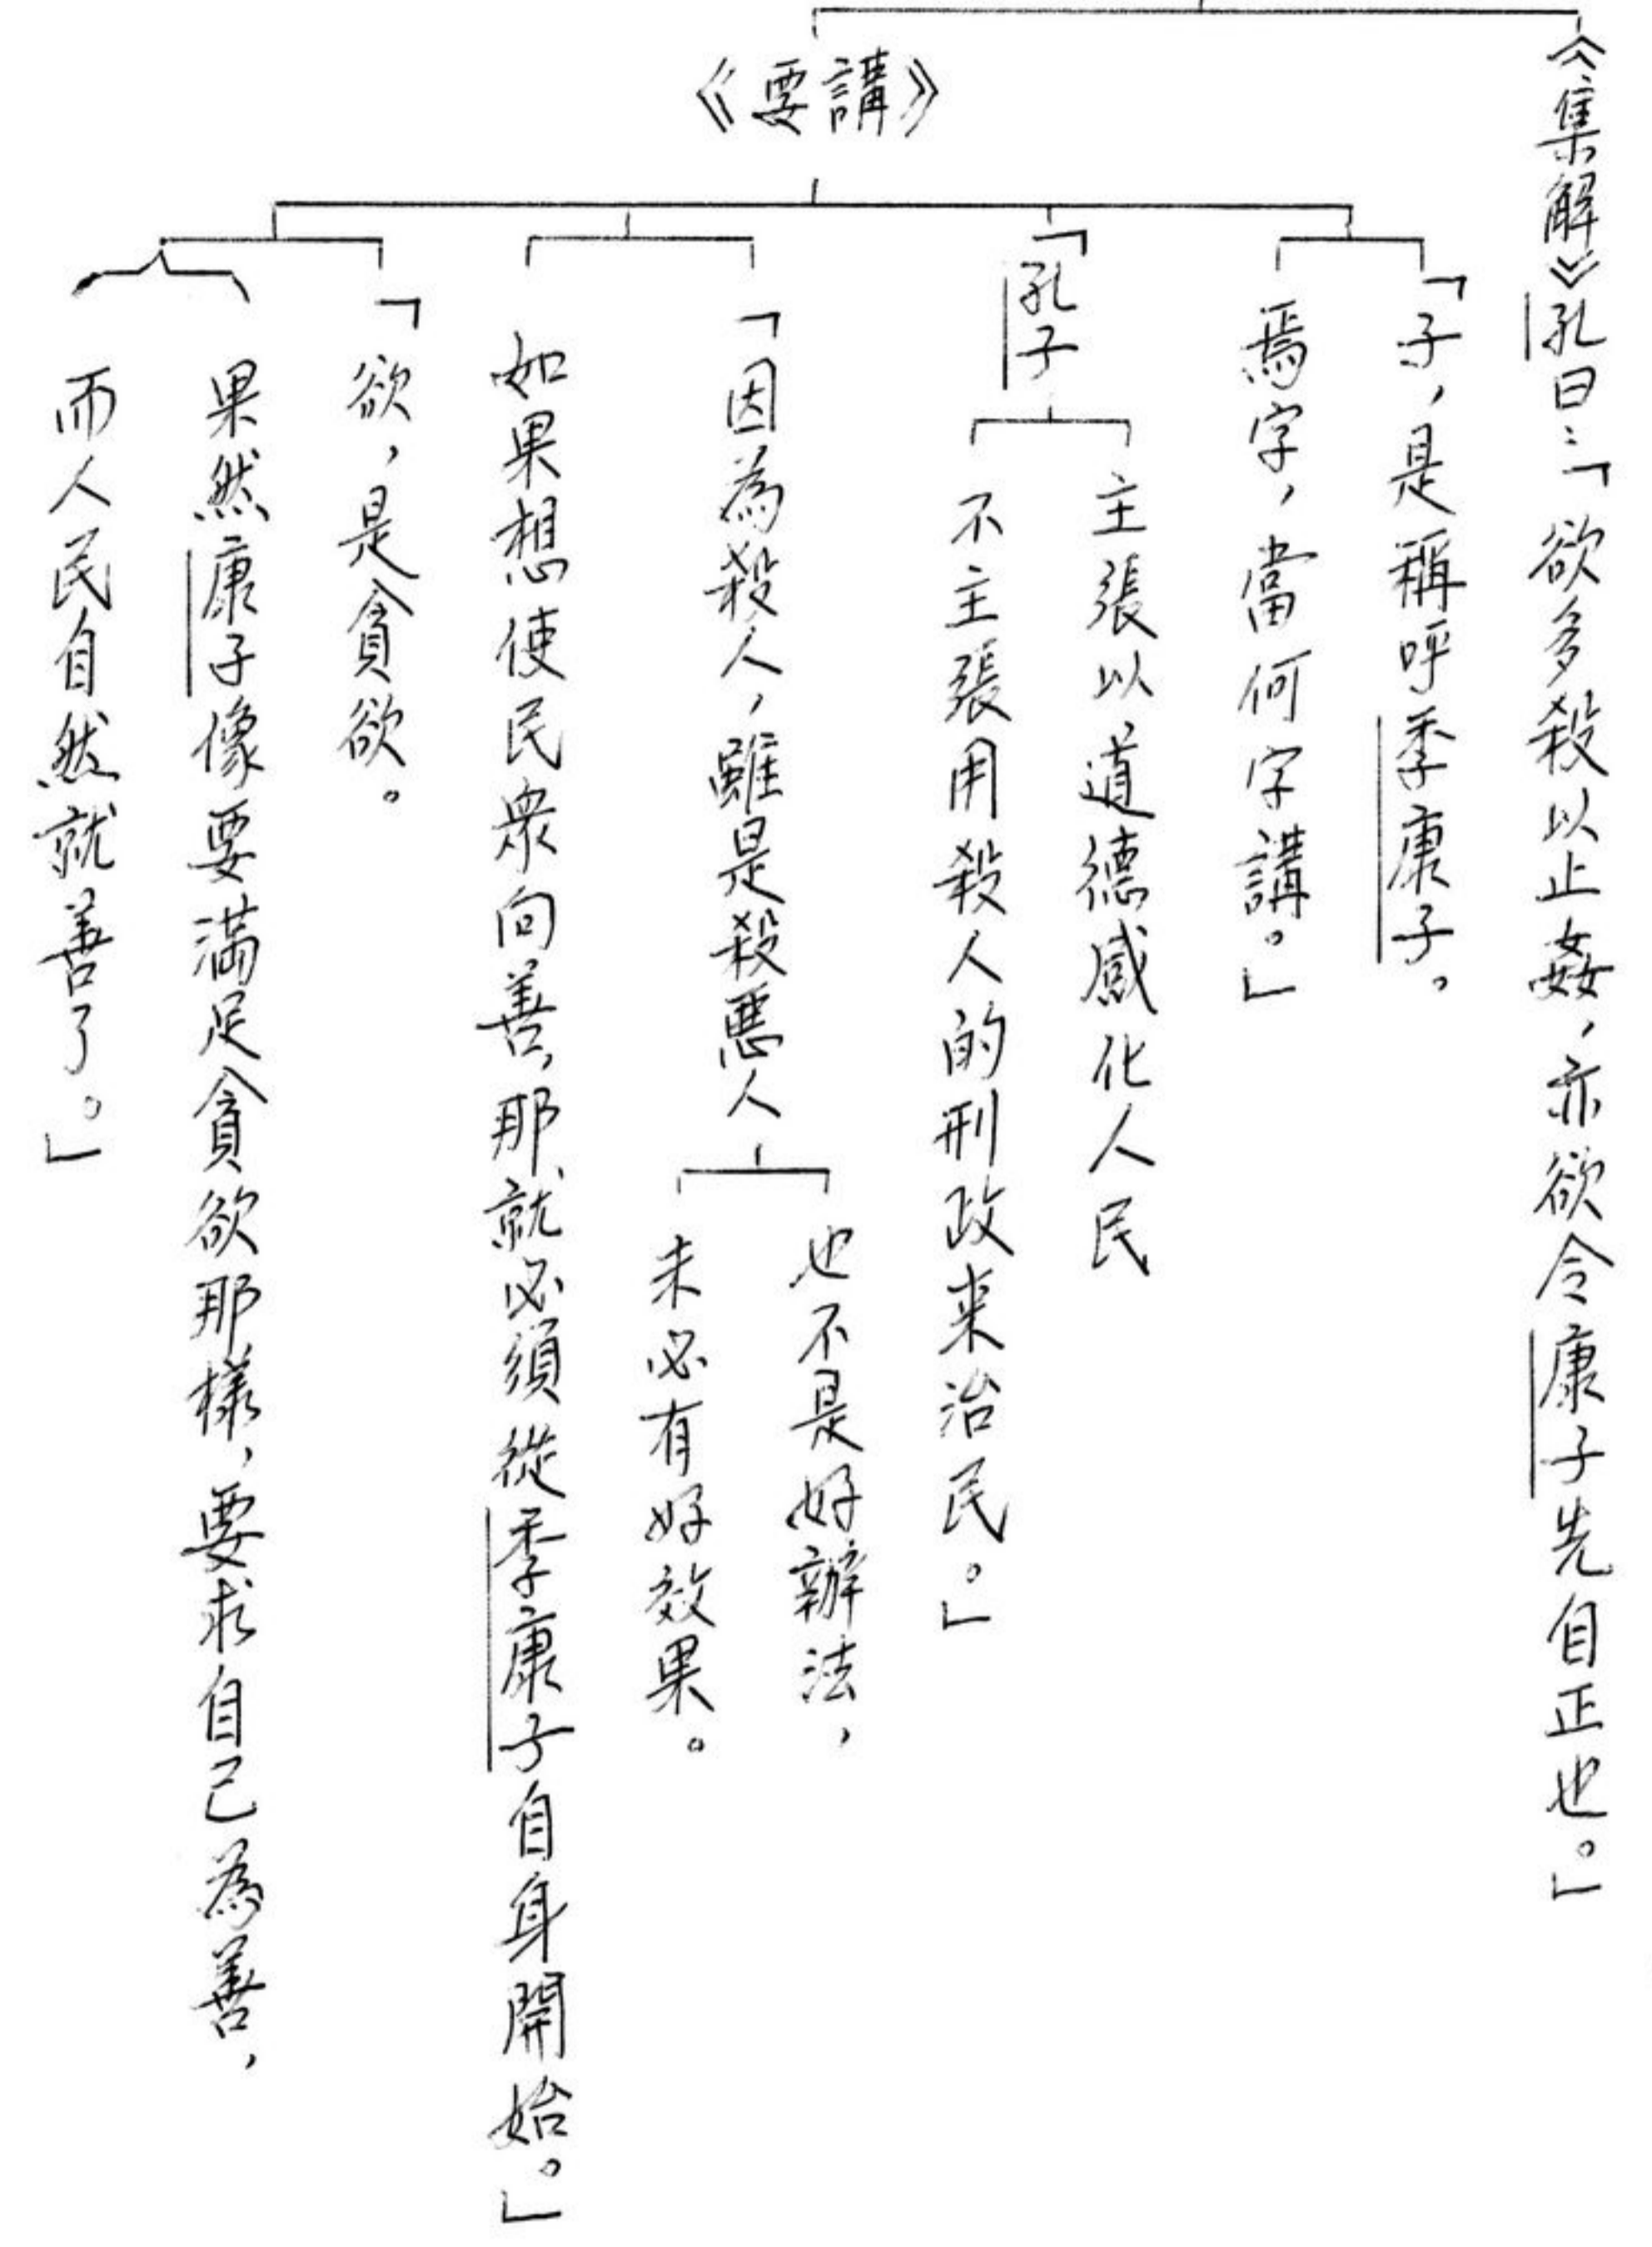 《集解》孔曰：「欲多殺以止姦，亦欲令康子先自正也。」
《要講》
「子，是稱呼季康子。
焉字，當何字講。」
「孔子
主張以道德感化人民
不主張用殺人的刑政來治民。」
「因為殺人，雖是殺惡人
也不是好辦法，
未必有好效果。
如果想使民眾向善，那就必須從季康子自身開始。」
「欲，是貪欲。
果然康子像要滿足貪欲那樣，要求自己為善，
而人民自然就善了。」